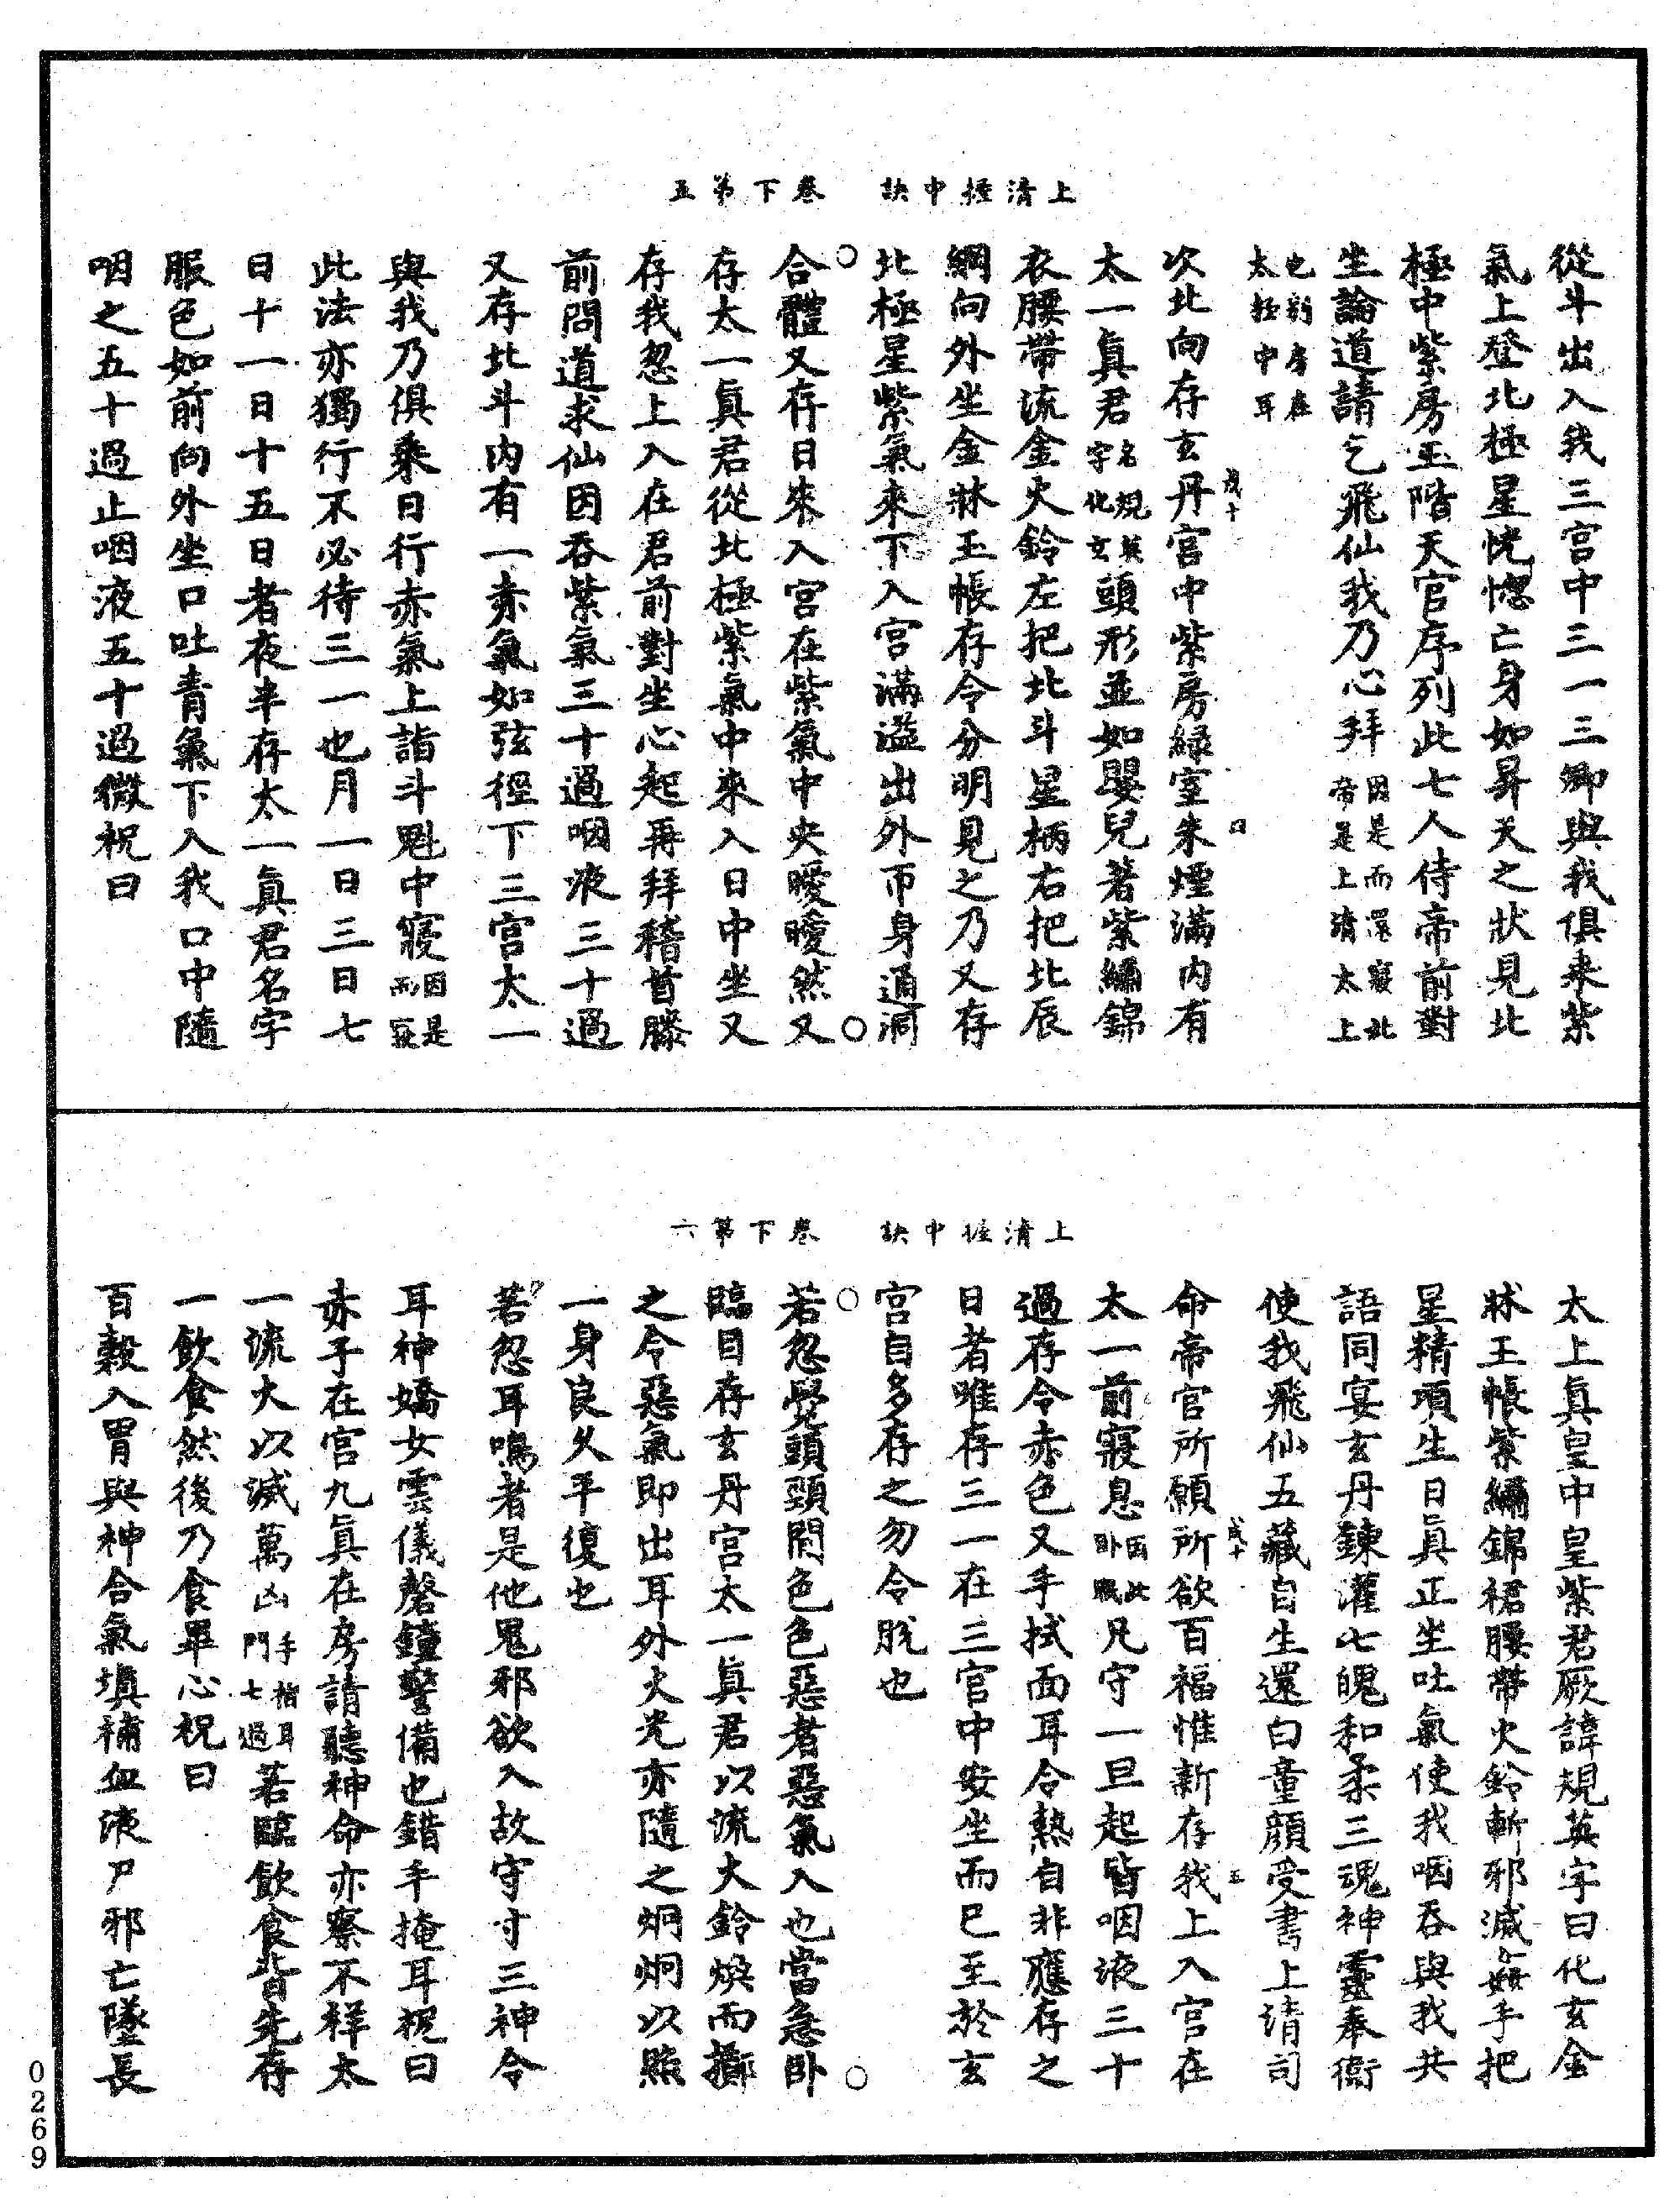 上清握中訣　卷下第五
從斗出入我三宮中三一三卿與我俱乘紫
氣上登北極星恍惚亡身如昇天之狀見北
極中紫房玉階天官序列此七人侍帝前對
坐論道請乞飛仙我乃心拜因是而還寢北帝是上清太上
也別房在太極中耳
成十
次北向存玄丹宮中紫房綠室朱煙滿內有
四
太一真君名規英字化玄頭形並如嬰兒著紫繡錦
衣腰帶流金火鈴左把北斗星柄右把北辰
綱向外坐金牀玉帳存令分明見之乃又存
北極星紫氣來下入宮滿溢出外帀身通洞
合體又存日來入宮在紫氣中央曖曖然又
存太一真君從北極紫氣中來入日中坐又
存我忽上入在君前對坐心起再拜稽首膝
前問道求仙因吞紫氣三十過咽液三十過
又存北斗內有一赤氣如弦徑下三宮太一
與我乃俱乘日行赤氣上詣斗魁中寢因是而寢
此法亦獨行不必待三一也月一日三日七
日十一日十五日者夜半存太一真君名字
服色如前向外坐口吐青氣下入我口中隨
咽之五十過止咽液五十過微祝曰
上清握中訣　卷下第六
太上真皇中皇紫君厥諱規英字曰化玄金
牀玉帳紫繡錦裙腰帶火鈴斬邪滅姦手把
星精項生日真正坐吐氣使我咽吞與我共
語同宴玄丹鍊灌七魄和柔三魂神靈奉衛
使我飛仙五藏自生還白童顏受書上清司
成十
命帝官所願所欲百福惟新存我上入宮在
五
太一前寢息因此卧職凡守一旦起皆咽液三十
過存令赤色又手拭面耳令熱自非應存之
日者唯存三一在三宮中安坐而巳至於玄
宮自多存之勿令脫也
若忽覺頭頸間色色惡者惡氣入也當急卧
臨目存玄丹宮太一真君以流火鈴煥而擲
之令惡氣即出耳外火光亦隨之炯炯以照
一身良久平復也
若忽耳鳴者是他鬼邪欲入故守寸三神令
耳神嬌女雲儀磬鐘警備也錯手掩耳祝曰
赤子在宮九真在房請聽神命亦察不祥太
一流火以滅萬凶手指耳門七過若臨飲食皆先存
一飲食然後乃食畢心祝曰
百穀入胃與神合氣填補血液尸邪亡墜長
0269